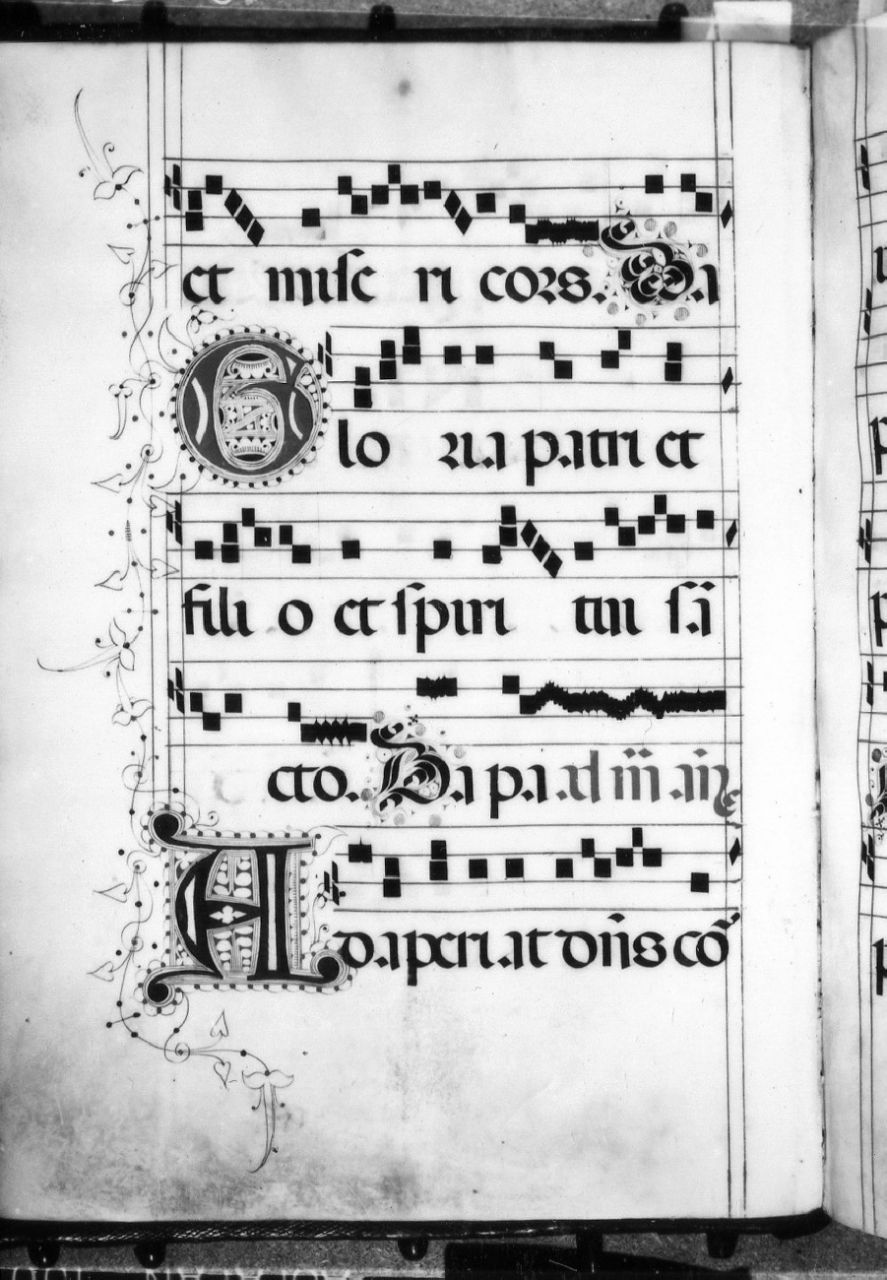 et mise ri cors. Da
Glo ria patri et
fili o et spiri tui sā
cto. Da pa
Adaperiat dn̄s cō